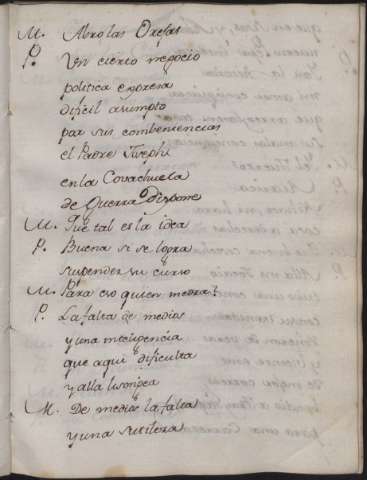 M. Abro las Orejas
P. Un cierto negocio
politica expresa
dificil asumpto
par sus combeniencias
el Padre
en la Covachuela
de Guerra Dispone
M. Que tal es la idea
P. Buena si se logra
suspender su curso
M. Para eso quien medra?
P. La falta de medios
y una inteligencia
que aqui dificulta
y alla lisonjea
M. De medios la falta
y una sutileza